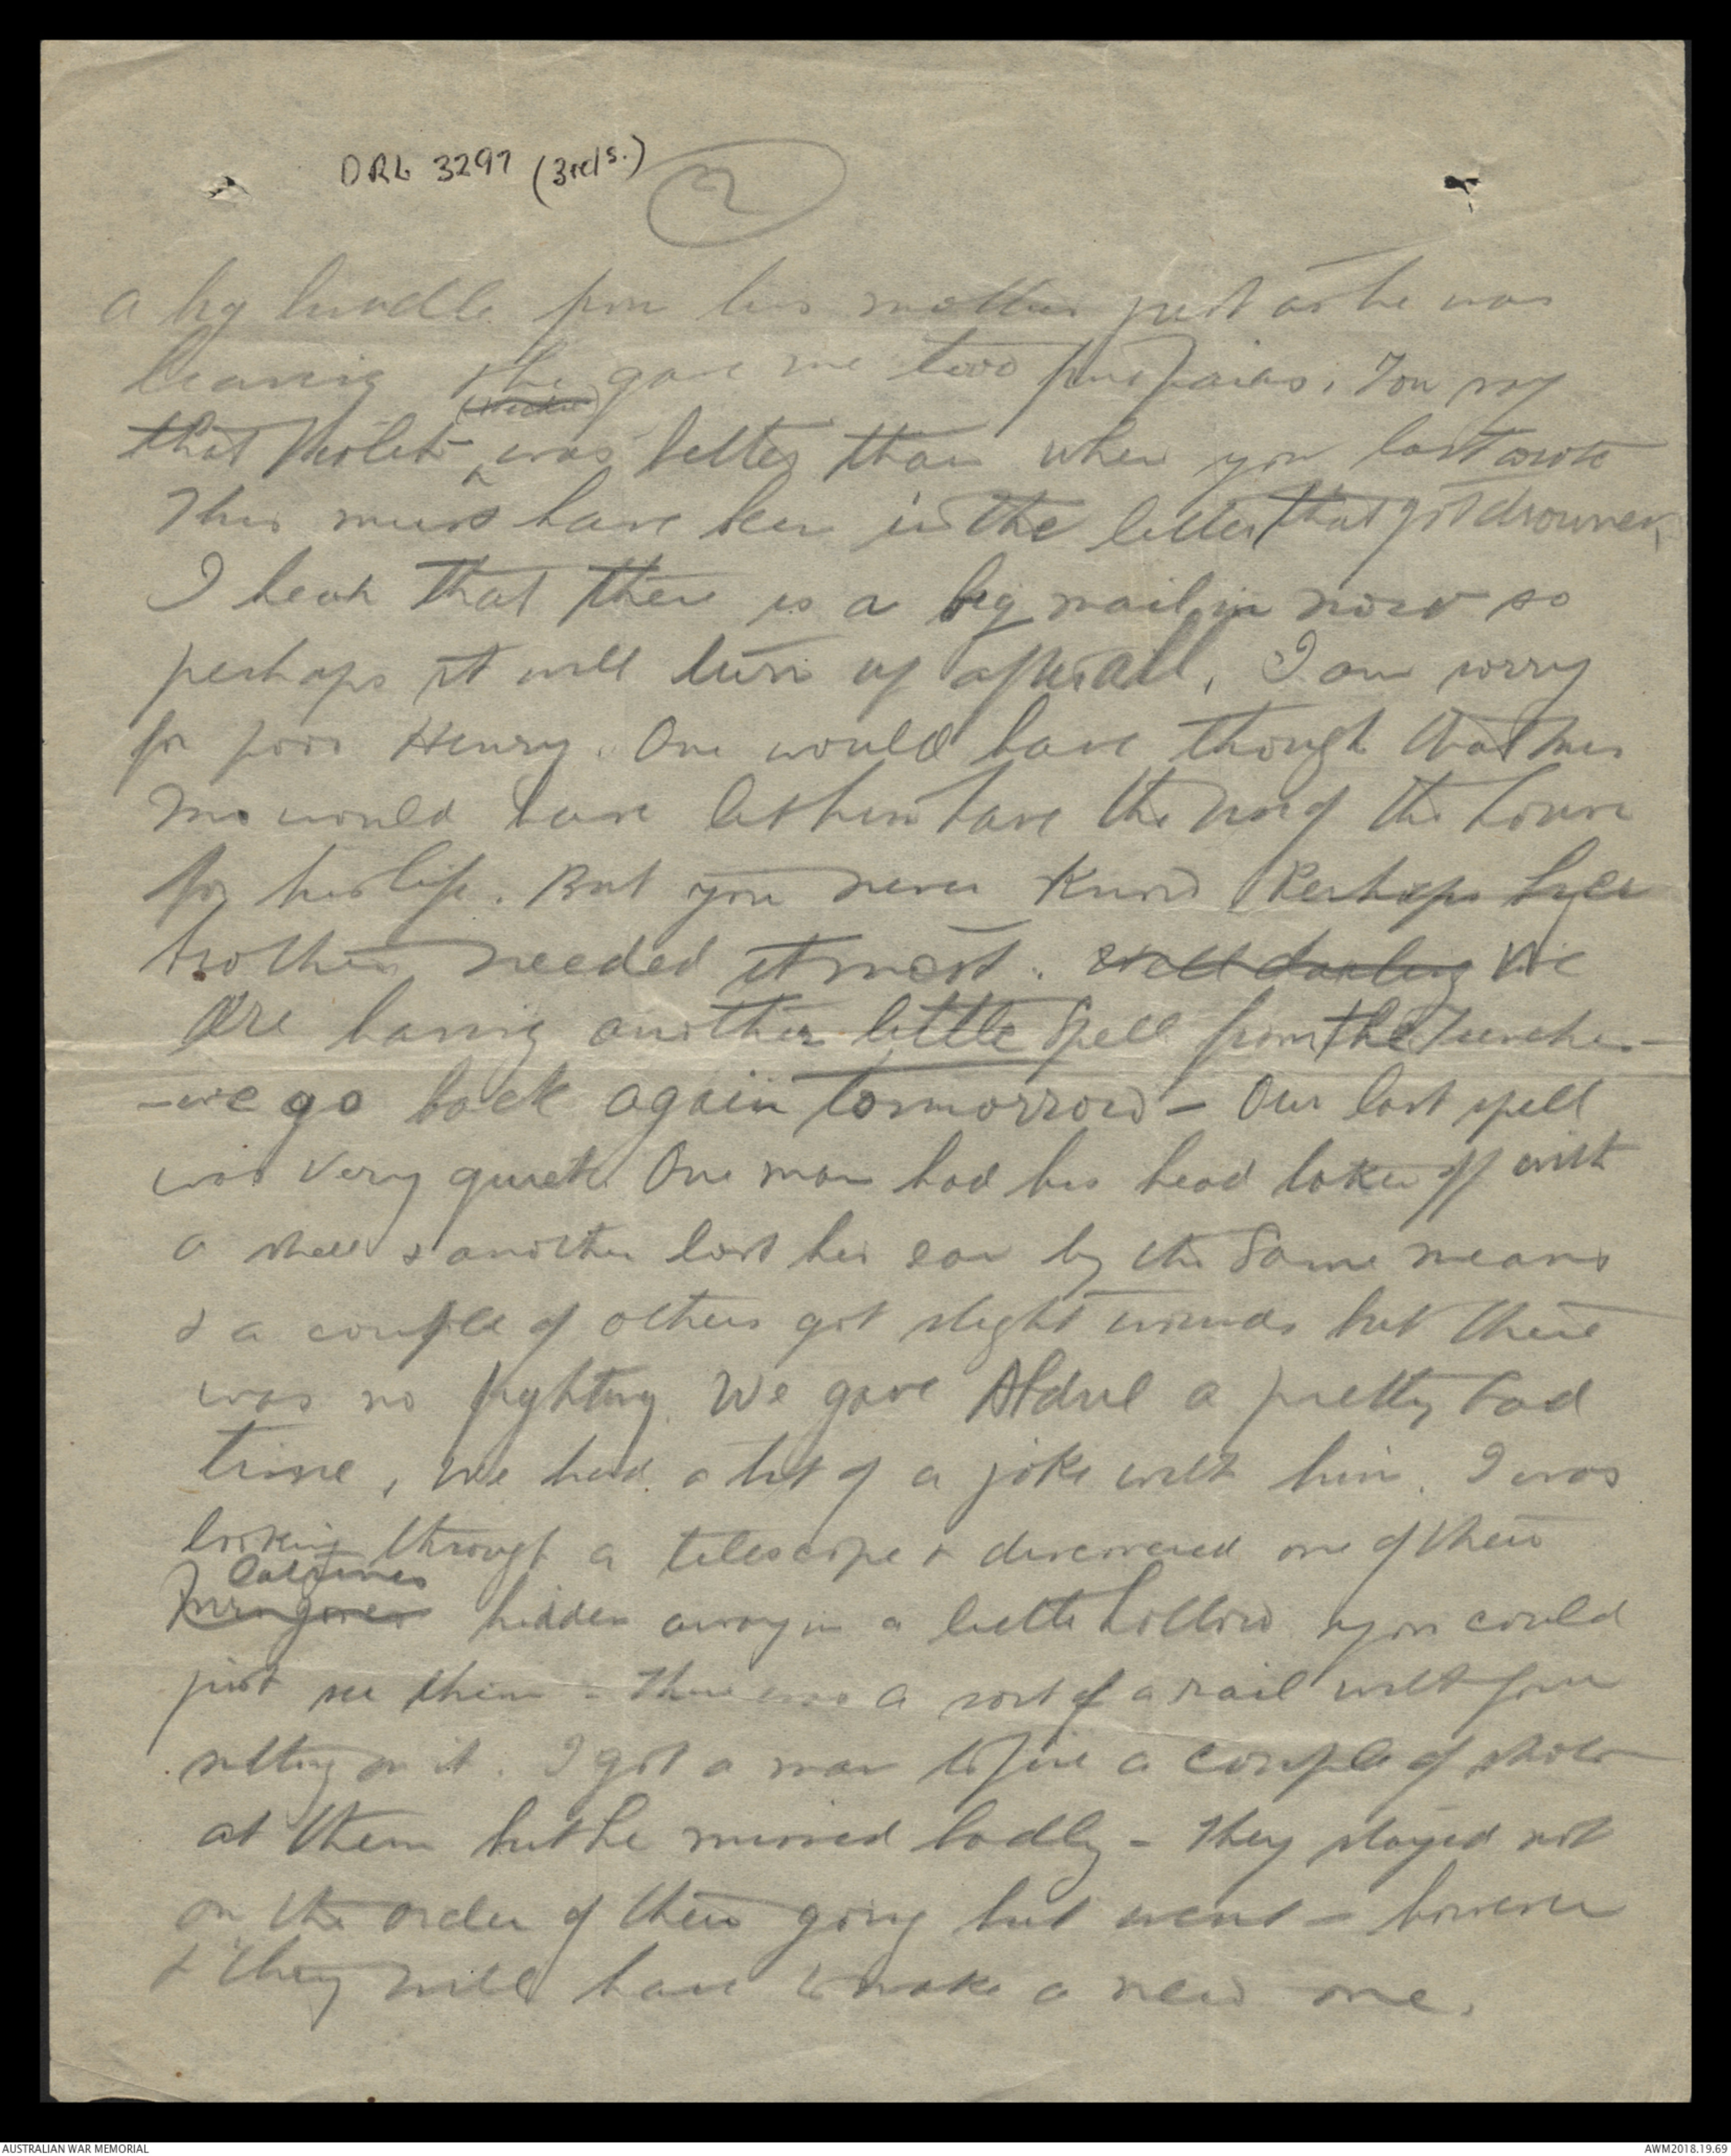 DRL 3297 (3rd s.)
2
a big bundle from his mother just as he was
leaving she gave me two pairs. You say
that Violet was better than when you last wrote
This must have been in the letter that got drowned,
I hear that there is a big mail in now so
perhaps it will turn up after all. I am sorry
for poor Henry. One would have though that
would have let him have the use of the house
for his life. But you never know Perhaps her
brother needed it most. Well darling We
are having another little spell from the trenches -
- we go back again tomorrow - Our last spell
was very quiet. One man had his head taken off with
a shell & another lost his ear by the same means
& a couple of others got slight wounds but there
was no fighting. We gave Abdul a pretty bad
time, We had a bit of a joke with him. I was
looking through a telescope & discovered one of their
latrines
hidden away in a little hollow you could
just see them - There was a sort of a rail with four
sitting on it. I got a man to fire a couple of shots
at them but he missed badly - They stayed not
on the order of their going but went - however
& they will have to make a new one.
AUSTRALIAN WAR MEMORIAL
AWM2018.19.69